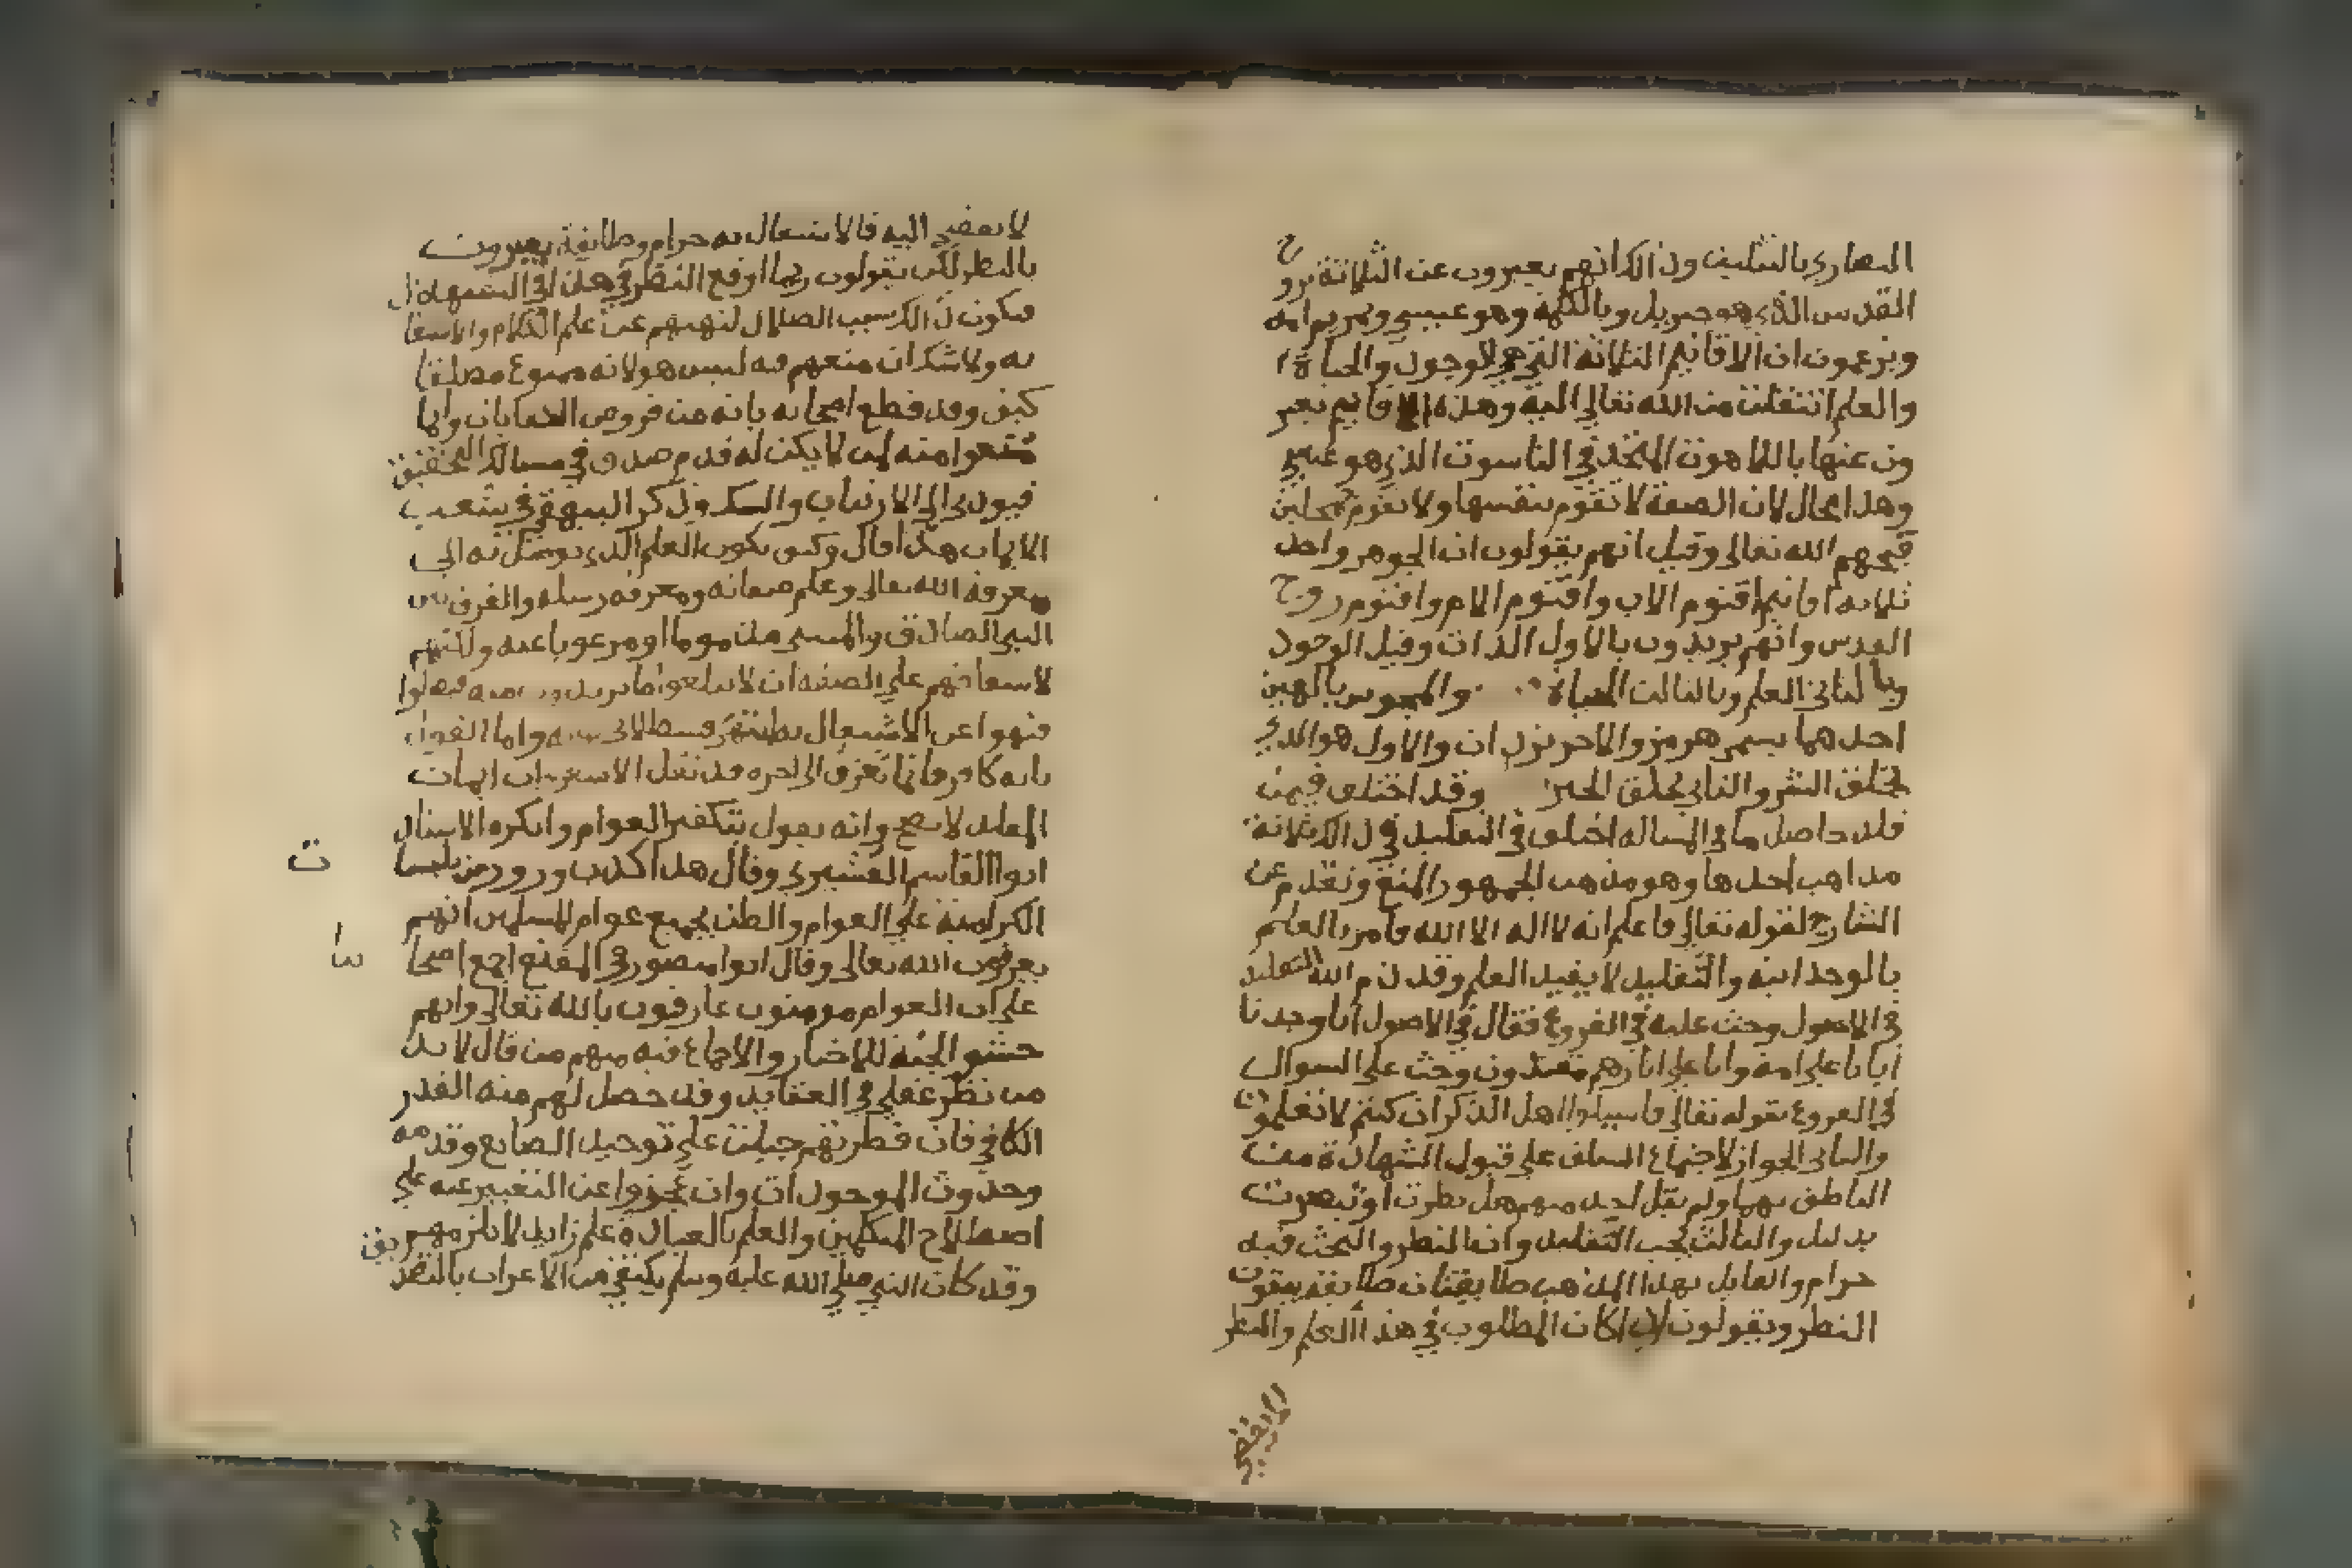 النصاري بالتثليث وذالك انهم يعبرون عن الثلاثة بروح
القدس الذي هو جبريل وبالكلمة وهو عيسي ومريم امه
ويزعمون ان الاقانيم الثلاثة التي هي الوجود والحياة
والعلم انتقلت من الله تعالي اليه وهذه الاقانيم يعبر
ون عنها باللاهوت المتحد في الناسوت الذي هو عيسي
وهذا محال لان الصفة لا تقوم بنفسها ولا تقوم بمحلين
قبحهم الله تعالى وقيل انهم يقولون ان الجوهر واحد
ثلاثه اقانيم اقنوم الاب واقنوم الام واقنوم روح
القدس وانهم يريدون بالاول الذات وقيل الوجود
وبالثاني العلم وبالثالث الحياة والمجوس بالهين
احدهما يسمى هرمز والاخر يزدان والاول هو الذي
يخلق الشر والثاني يخلق الخير وقد اختلف فيمن
قلد حاصل ما في المساله اختلف في التقليد في ذالك ثلاثة
مذاهب احدها وهو مذهب الجمهور المنع ونقدم عن
الشارح لقوله تعالي فاعلم انه لا اله الا الله فامر بالعلم
بالوحدانيه والتقليد لا يفيد العلم وقد ذم الله التقليد
في الاصول وحث عليه في الفروع فقال في الاصول انا وجدنا
اباءنا علي امة وانا علي اثارهم مقتدون وحث على السوال
في الفروع بقوله تعالي فاسيلوا اهل الذكر ان كنتم لا تعلمون
والثاني الجواز لاجتماع السلف علي قبول الشهادة من
الناطق بهما ولم يقل احد منهم هل نظرت او تبصرت
بدليل والثالث يجب التقليد وان النظر والبحث فيه
حرام والقايل بهذا المذهب طايفتان طايفة ينفون
النظر ويقولون اذا كان المطلوب في هذا العلم والنظر
لا يفضي
لا يفضي اليه فالاشتغال به حرام وطايفة يعبرون
بالنظر لكن يقولون ربما اوقع النظر في هذا في الشبهه
فيكون ذالك سبب الضلال لنهيهم عن علم الكلام والاشتغا
به ولا شك ان منعهم فيه ليس هو لانه ممنوع مطلقا
كيف وقد قطع اصحابه بانه من فروض الكفايات وانما
منعوا منه لمن لا يكن له قدم صدق في مسالك التحقيق
فيودي الى الارتياب والشك وذكر البيهقي في شعب
الايمان هكذا قال وكيف يكون العلم الذي يتوصل به الى
معرفة الله تعالى وعلم صفاته ومعرفه رسله والفرق بين
النبي الصادق والمتنبي مذموما او مرغوبا عنه ولكنهم
لاشفاقهم علي الضعفه ان لا يبلغوا ما يريدون منه فيضلوا
فنهوا عن الاشتغال به واما القول
بانه كافر فانما تعزى الى احره فقد نقل الاسعري ان ايمان
المقلد لا يصح وانه يقول بتكفير العوام وانكره الاستاذ
ابوا القاسم القشيري وقال هذا كذب وزور من تلبيسات
الكراميه علي العوام والظن بجميع عوام المسلمين انهم
يعرفون الله تعالى وقال ابوا منصور في المقنع اجمع اصحابنا
على ان العوام مومنون عارفون بالله تعالى وانهم
حشو الجنة للاخبار والاجماع فيه منهم من قال لا بد
من نظر عقلي في العقايد وقد حصل لهم منه القدر
الكافي فان فطرتهم جبلت علي توحيد الصانع وقدمه
وحدوث الموجودات وان عجزوا عن التعبير عنه علي
اصطلاح المتكلمين والعلم بالعبادة علم زايد لا يلزمهم
وقد كان النبي صلي الله عليه وسلم يكتفي من الاعراب بالتصديق